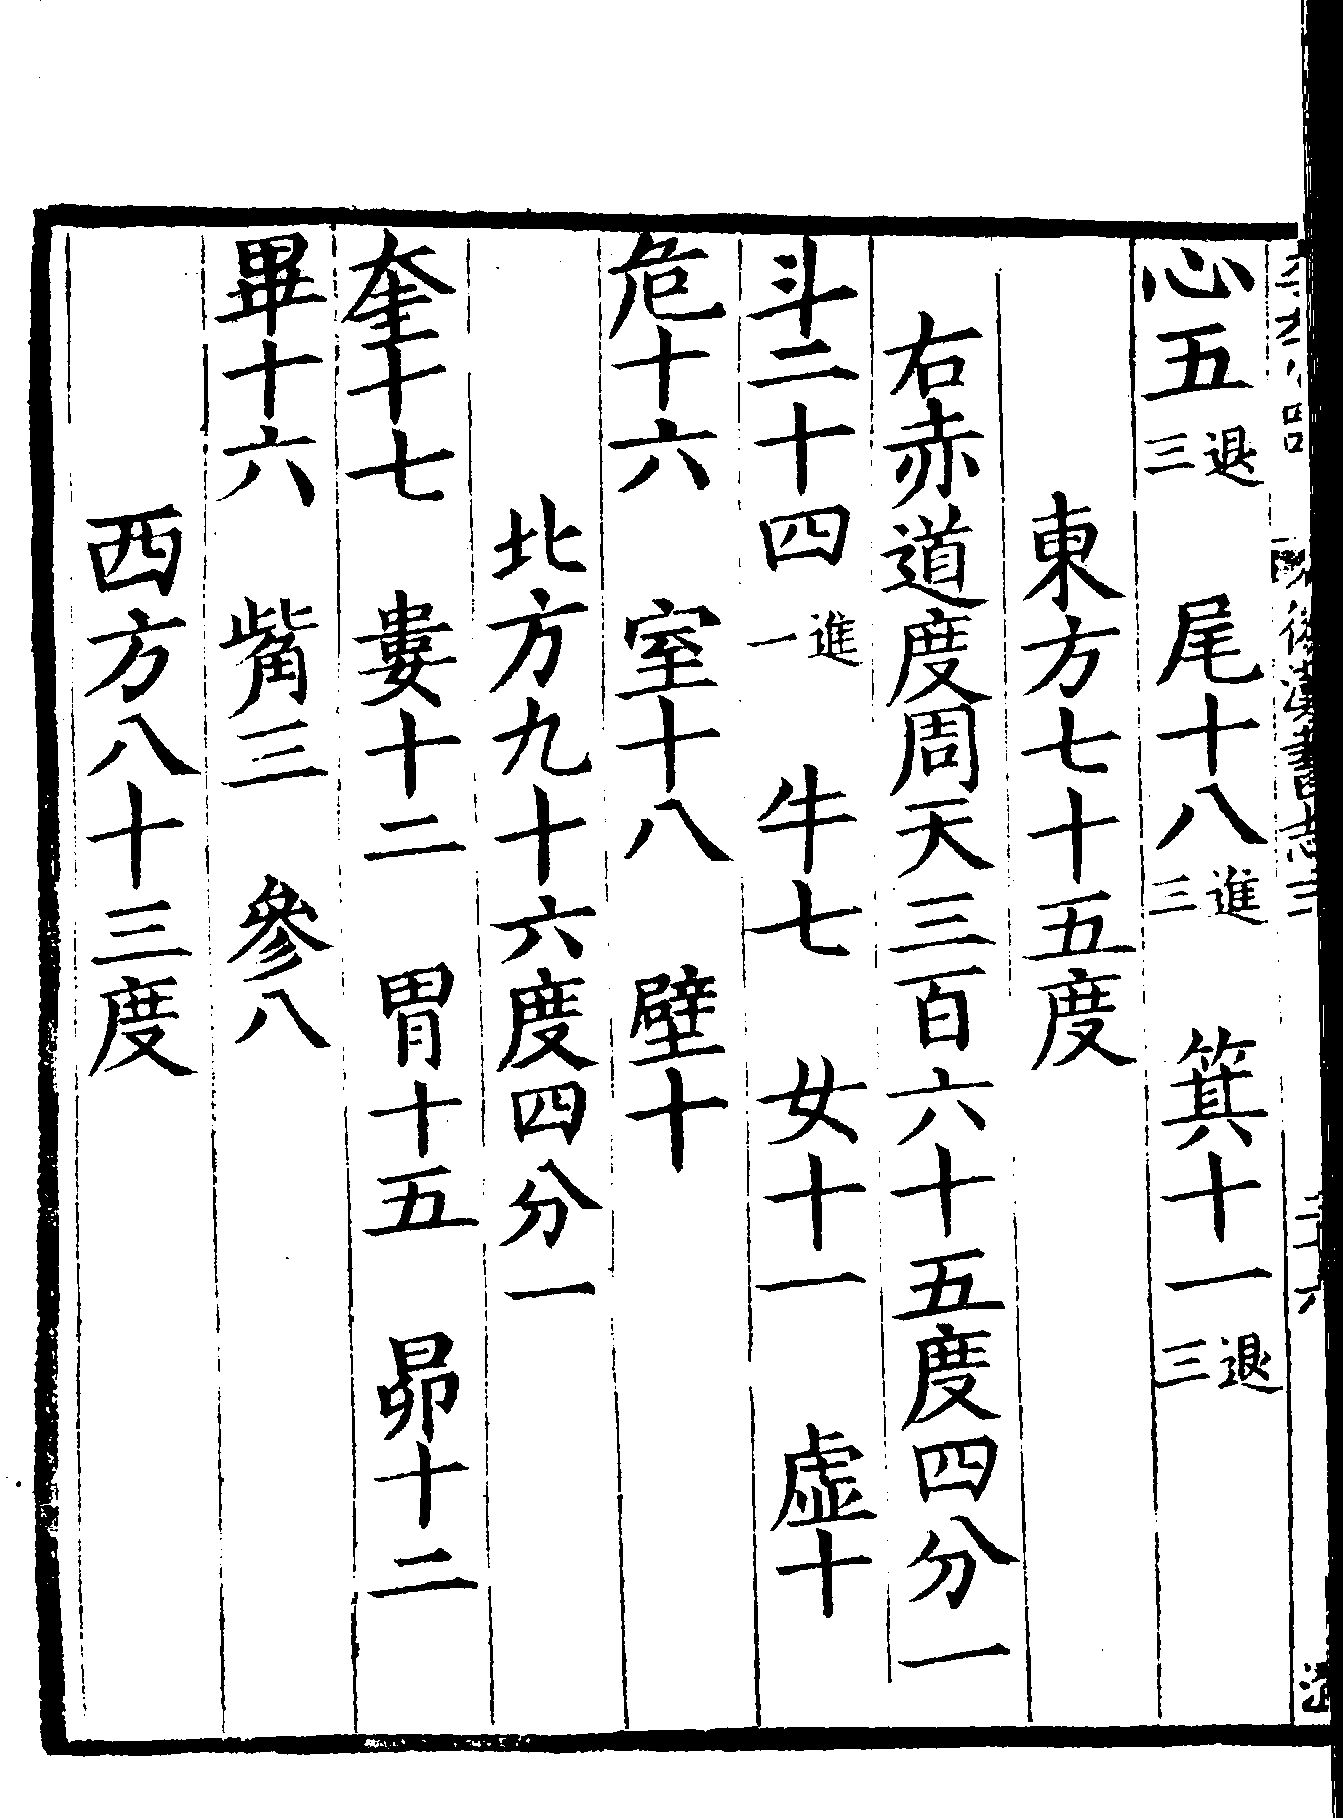 心五退三　尾十八進三　箕十一退三
東方七十五度
右赤道度周天三百六十五度四分一
斗二十四進一　牛七　女十一　虛十
危十六　室十八　壁十
北方九十六度四分一
奎十七　婁十二　胃十五　昴十二
畢十六　觜三　參八
西方八十三度